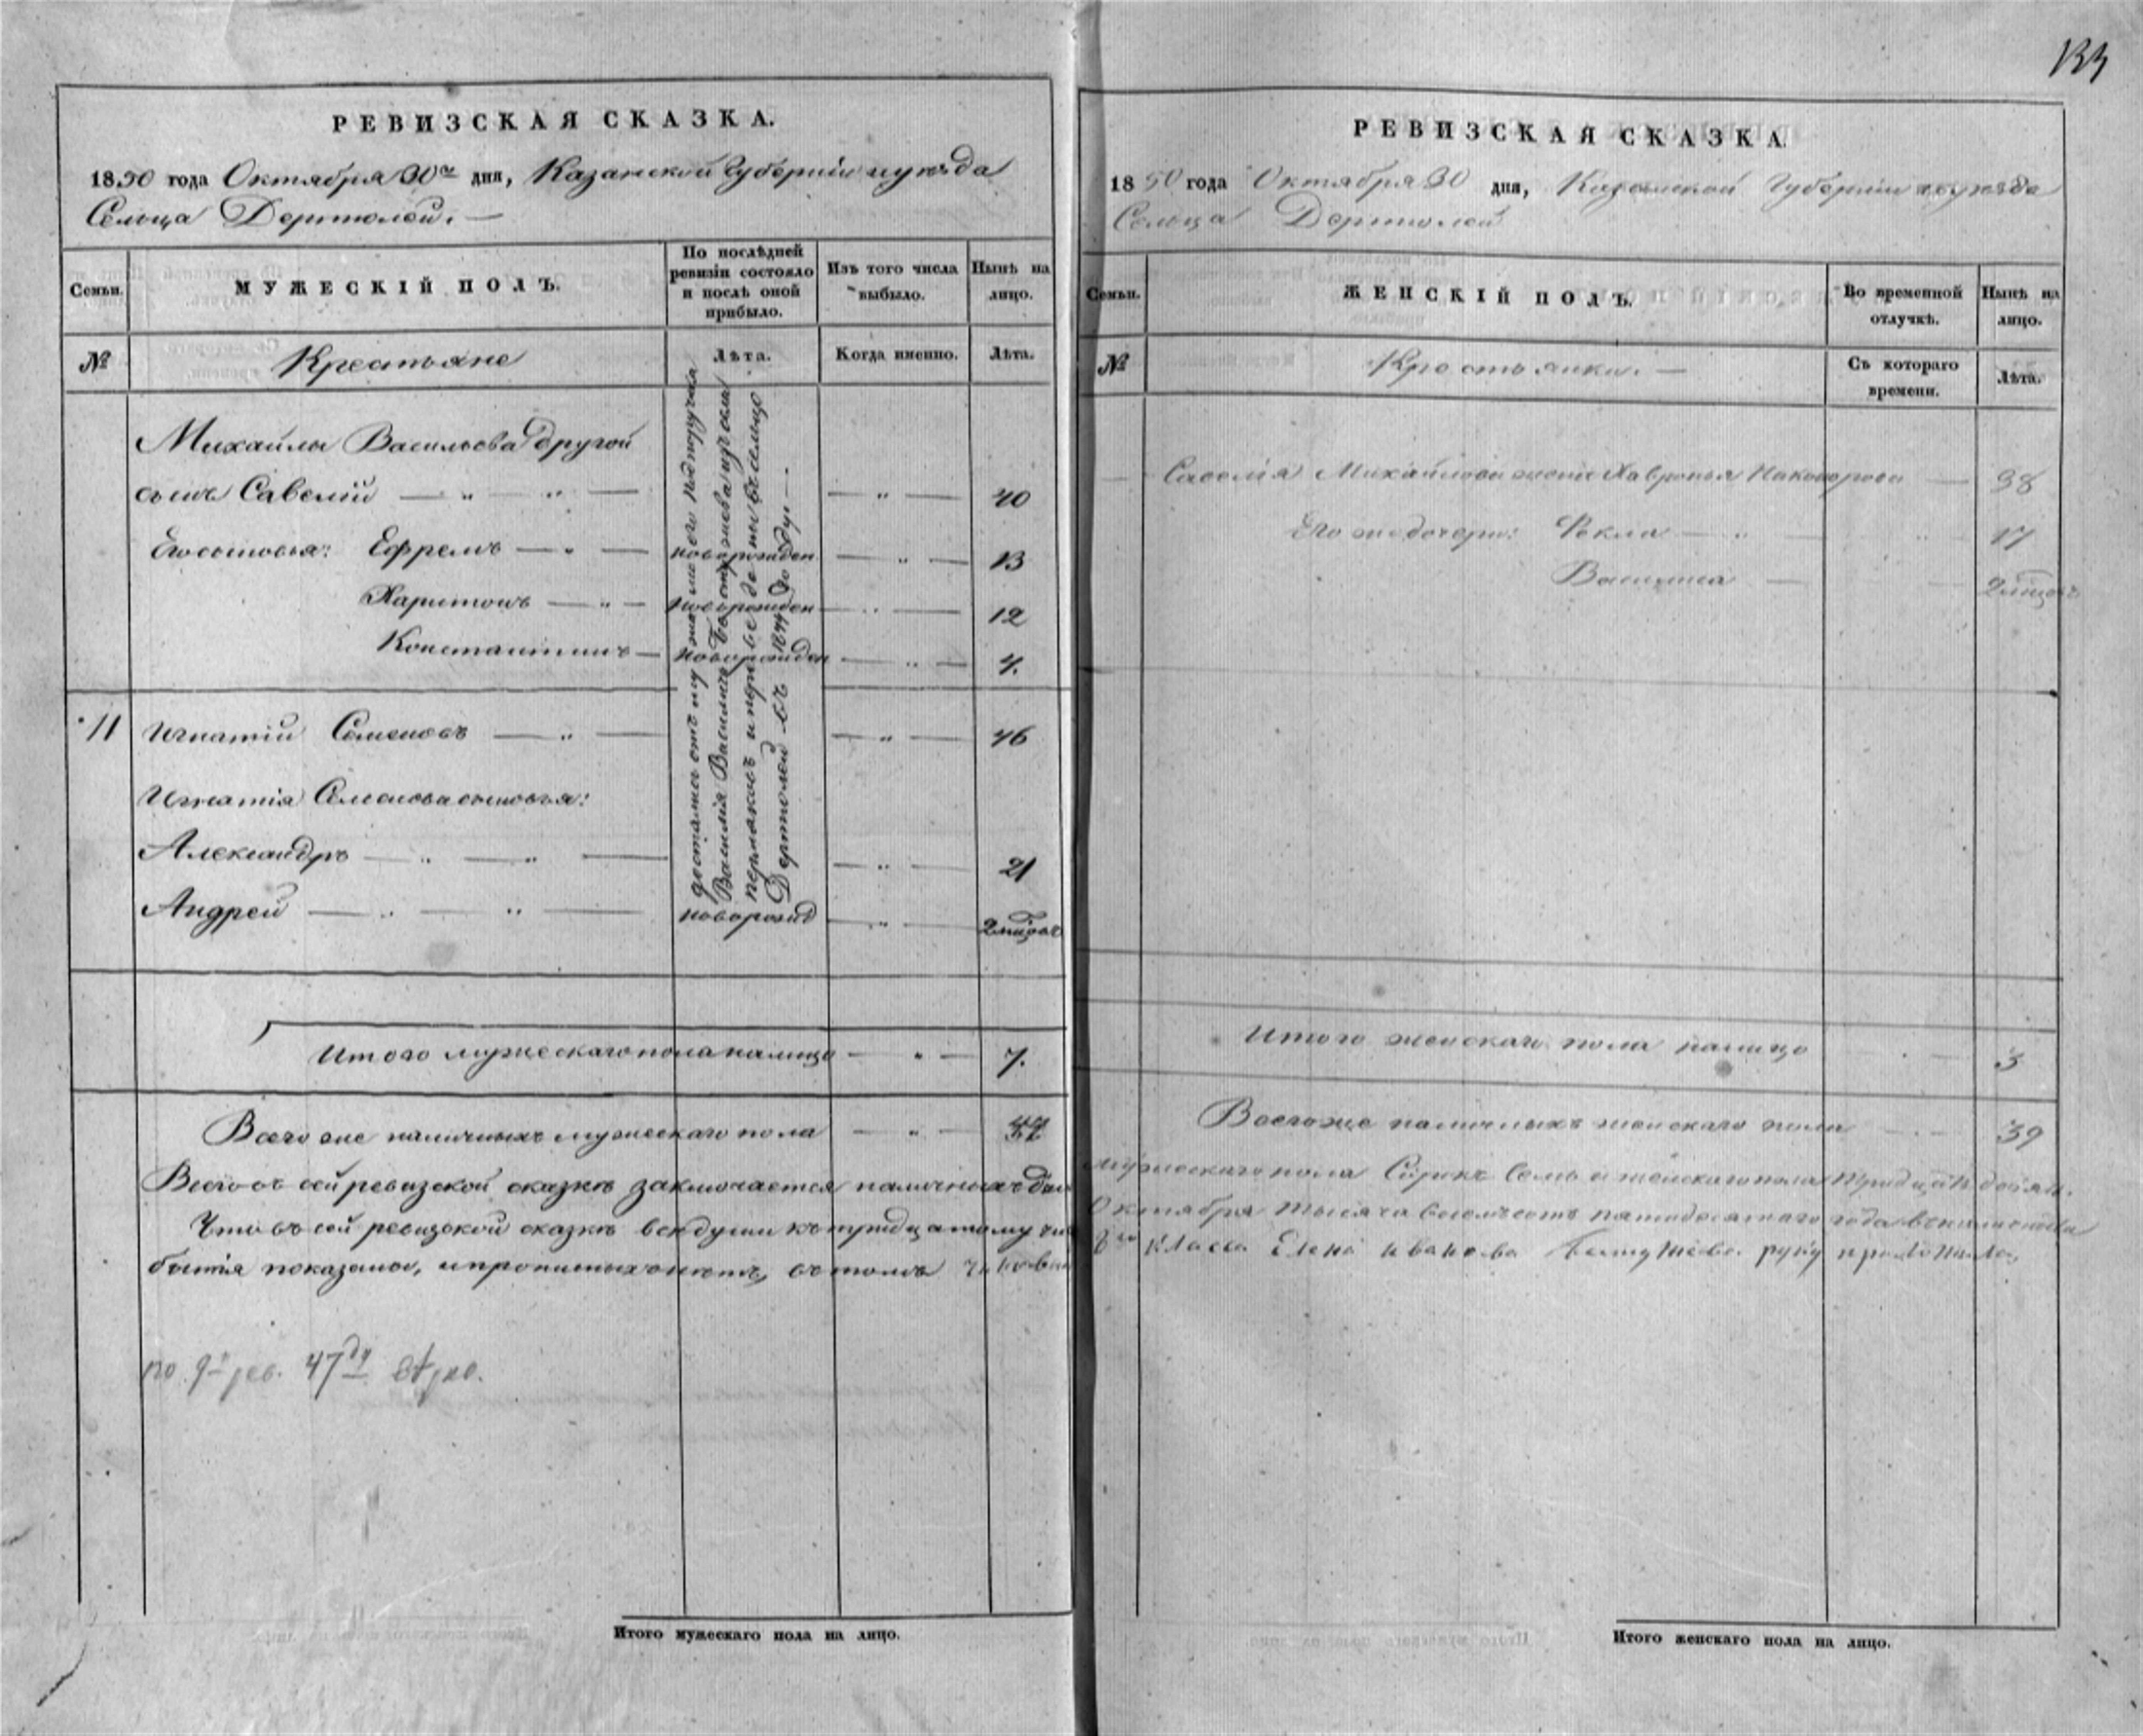 133
РЕВИЗСКАЯ СКАЗКА.
1850 года Октября 30го дня, Казанской Губерніи и уѣзда
Сельца Дертюлей. —
Семьи.
МУЖЕСКІЙ ПОЛЪ.
По послѣдней ревизіи состояло и послѣ оной прибыло.
Изъ того числа выбыло.
Нынѣ на лицо.
№
Крестьяне
Лѣта.
Когда именно.
Лѣта.
Михайлы Васильева другой
сынъ Савелій — " — " — — " — 40
Его сыновья: Ефремъ — " — новорожден — " — 13
Харитонъ — " — новорожден — " — 12
Константинъ — новорожден — " — 4.
достались отъ мужа моего подпоручика
Василія Васильича
и переведены в сельцо
Дертюлей въ 1844 году —
11 Игнатій Семеновъ — " — — " — 46
Игнатія Семенова сыновья:
Александръ — " — " — — " — 21
Андрей — " — " — новорожд — " — 2 мѣсяц
Итого мужескаго пола налицо — " — 7.
Всего же наличныхъ мужескаго пола — " — 47
Всего въ сей ревизской сказкѣ заключается наличныхъ душ
Что въ сей ревизской сказкѣ всѣ души къ тридцатому чи
бытія показаны, и прописныхъ нѣтъ, въ томъ
по 9й рев. 47 ду
Итого мужескаго пола на лицо.
РЕВИЗСКАЯ СКАЗКА
1850 года Октября 30 дня, Казанской Губерніи и уѣзда
Сельца Дертюлей
Семьи.
ЖЕНСКІЙ ПОЛЪ.
Во временной отлучкѣ.
Нынѣ на лицо.
№
Крестьянки. —
Съ котораго времени.
Лѣта.
Савелія Михайлова жена Хавронья Никонорова — 38
Его же дочери: Фекла — " — " 17
Василиса — — 2 мѣсяц
Итого женскаго пола налицо — 3
Всего же наличныхъ женскаго пола — 39
мужескаго пола Сорокъ Семь и женскаго пола тридцать девять.
Октября тысяча восемьсотъ пятидесятаго года
класса Елена Иванова руку приложила.
Итого женскаго пола на лицо.